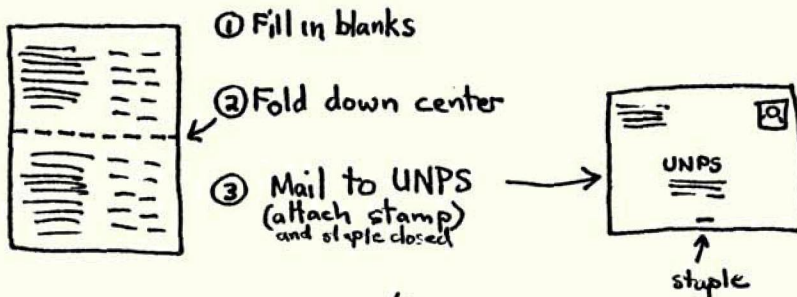 ① Fill in blanks
② Fold down center
③ Mail to UNPS
(attach stamp)
and staple closed
UNPS
staple